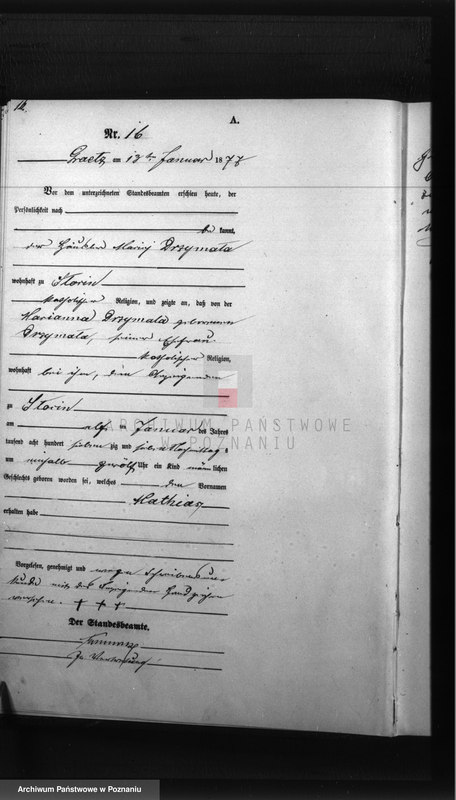 16.
A.
Nr. 16
Graetz am 13ten Januar 1877
Vor dem unterzeichneten Standesbeamten erschien heute, der
Persönlichkeit nach
be kannt,
der Häusler Drzymala
wohnhaft zu
katholischer Religion, und zeigte an, daß von der
Marianna Drzymala geborenen
Drzymala, seiner Ehefrau
katholischer Religion,
wohnhaft bei ihm, dem Anzeigenden
zu
am elf ten Januar des Jahres
tausend acht hundert sieben zig und sieben Nachmittags
um Uhr ein Kind männlichen
Geschlechts geboren worden sei, welches den Vornamen
Mathias
erhalten habe
Vorgelesen, genehmigt und wegen Schreibensun-
kunde mit des Anzeigenden Handzeichen
versehen. + + +
Der Standesbeamte.
In Vertretung
ARCHIWUM PAŃSTWOWE
W POZNANIU
Archiwum Państwowe w Poznaniu